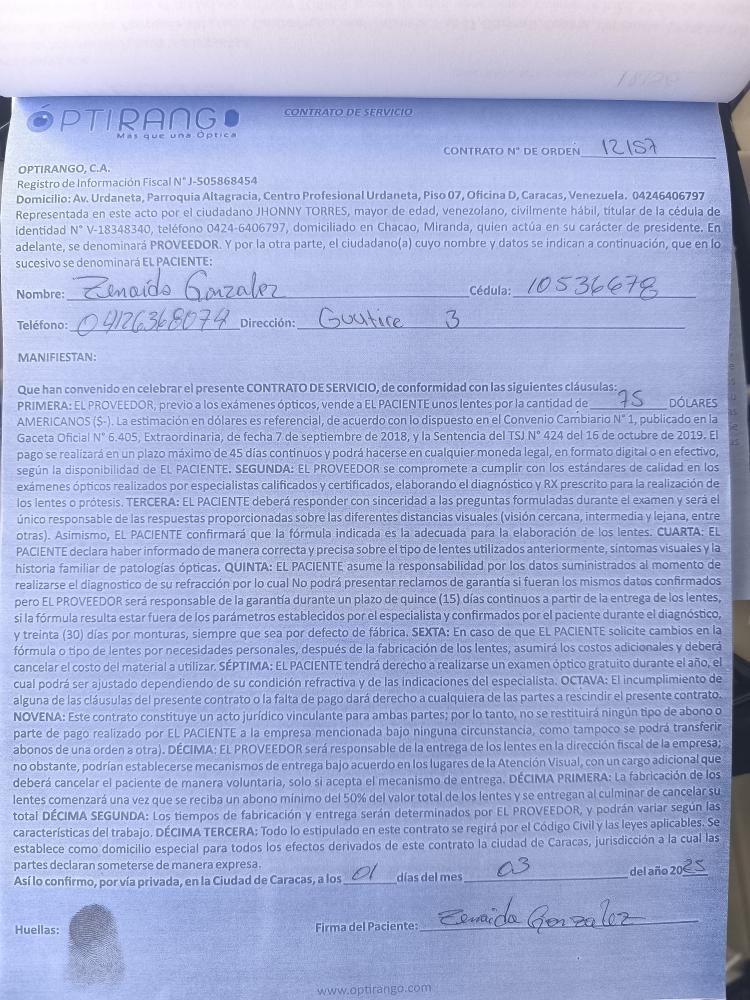 ÓPTIRANGO
Más que una Óptica
CONTRATO DE SERVICIO
CONTRATO N° DE ORDEN 12157
OPTIRANGO, C.A.
Registro de Información Fiscal N° J-505868454
Domicilio: Av. Urdaneta, Parroquia Altagracia, Centro Profesional Urdaneta, Piso 07, Oficina D, Caracas, Venezuela. 04246406797
Representada en este acto por el ciudadano JHONNY TORRES, mayor de edad, venezolano, civilmente hábil, titular de la cédula de
identidad N° V-18348340, teléfono 0424-6406797, domiciliado en Chacao, Miranda, quien actúa en su carácter de presidente. En
adelante, se denominará PROVEEDOR. Y por la otra parte, el ciudadano(a) cuyo nombre y datos se indican a continuación, que en lo
sucesivo se denominará EL PACIENTE:
Nombre: Zenaida Gonzalez Cédula: 10536678
Teléfono: 04126368074 Dirección: Guatire 3
MANIFIESTAN:
Que han convenido en celebrar el presente CONTRATO DE SERVICIO, de conformidad con las siguientes cláusulas:
PRIMERA: EL PROVEEDOR, previo a los exámenes ópticos, vende a EL PACIENTE unos lentes por la cantidad de 75 DÓLARES
AMERICANOS ($-). La estimación en dólares es referencial, de acuerdo con lo dispuesto en el Convenio Cambiario N° 1, publicado en la
Gaceta Oficial N° 6.405, Extraordinaria, de fecha 7 de septiembre de 2018, y la Sentencia del TSJ N° 424 del 16 de octubre de 2019. El
pago se realizará en un plazo máximo de 45 días continuos y podrá hacerse en cualquier moneda legal, en formato digital o en efectivo,
según la disponibilidad de EL PACIENTE. SEGUNDA: EL PROVEEDOR se compromete a cumplir con los estándares de calidad en los
exámenes ópticos realizados por especialistas calificados y certificados, elaborando el diagnóstico y RX prescrito para la realización de
los lentes o prótesis. TERCERA: EL PACIENTE deberá responder con sinceridad a las preguntas formuladas durante el examen y será el
único responsable de las respuestas proporcionadas sobre las diferentes distancias visuales (visión cercana, intermedia y lejana, entre
otras). Asimismo, EL PACIENTE confirmará que la fórmula indicada es la adecuada para la elaboración de los lentes. CUARTA: EL
PACIENTE declara haber informado de manera correcta y precisa sobre el tipo de lentes utilizados anteriormente, síntomas visuales y la
historia familiar de patologías ópticas. QUINTA: EL PACIENTE asume la responsabilidad por los datos suministrados al momento de
realizarse el diagnostico de su refracción por lo cual No podrá presentar reclamos de garantía si fueran los mismos datos confirmados
pero EL PROVEEDOR será responsable de la garantía durante un plazo de quince (15) días continuos a partir de la entrega de los lentes,
si la fórmula resulta estar fuera de los parámetros establecidos por el especialista y confirmados por el paciente durante el diagnóstico,
y treinta (30) días por monturas, siempre que sea por defecto de fábrica. SEXTA: En caso de que EL PACIENTE solicite cambios en la
fórmula o tipo de lentes por necesidades personales, después de la fabricación de los lentes, asumirá los costos adicionales y deberá
cancelar el costo del material a utilizar. SÉPTIMA: EL PACIENTE tendrá derecho a realizarse un examen óptico gratuito durante el año, el
cual podrá ser ajustado dependiendo de su condición refractiva y de las indicaciones del especialista. OCTAVA: El incumplimiento de
alguna de las cláusulas del presente contrato o la falta de pago dará derecho a cualquiera de las partes a rescindir el presente contrato.
NOVENA: Este contrato constituye un acto jurídico vinculante para ambas partes; por lo tanto, no se restituirá ningún tipo de abono o
parte de pago realizado por EL PACIENTE a la empresa mencionada bajo ninguna circunstancia, como tampoco se podrá transferir
abonos de una orden a otra). DÉCIMA: EL PROVEEDOR será responsable de la entrega de los lentes en la dirección fiscal de la empresa;
no obstante, podrían establecerse mecanismos de entrega bajo acuerdo en los lugares de la Atención Visual, con un cargo adicional que
deberá cancelar el paciente de manera voluntaria, solo si acepta el mecanismo de entrega. DÉCIMA PRIMERA: La fabricación de los
lentes comenzará una vez que se reciba un abono mínimo del 50% del valor total de los lentes y se entregan al culminar de cancelar su
total DÉCIMA SEGUNDA: Los tiempos de fabricación y entrega serán determinados por EL PROVEEDOR, y podrán variar según las
características del trabajo. DÉCIMA TERCERA: Todo lo estipulado en este contrato se regirá por el Código Civil y las leyes aplicables. Se
establece como domicilio especial para todos los efectos derivados de este contrato la ciudad de Caracas, jurisdicción a la cual las
partes declaran someterse de manera expresa.
Así lo confirmo, por vía privada, en la Ciudad de Caracas, a los 01 días del mes 03 del año 2025
Huellas: Firma del Paciente: Zenaida Gonzalez
www.optirango.com